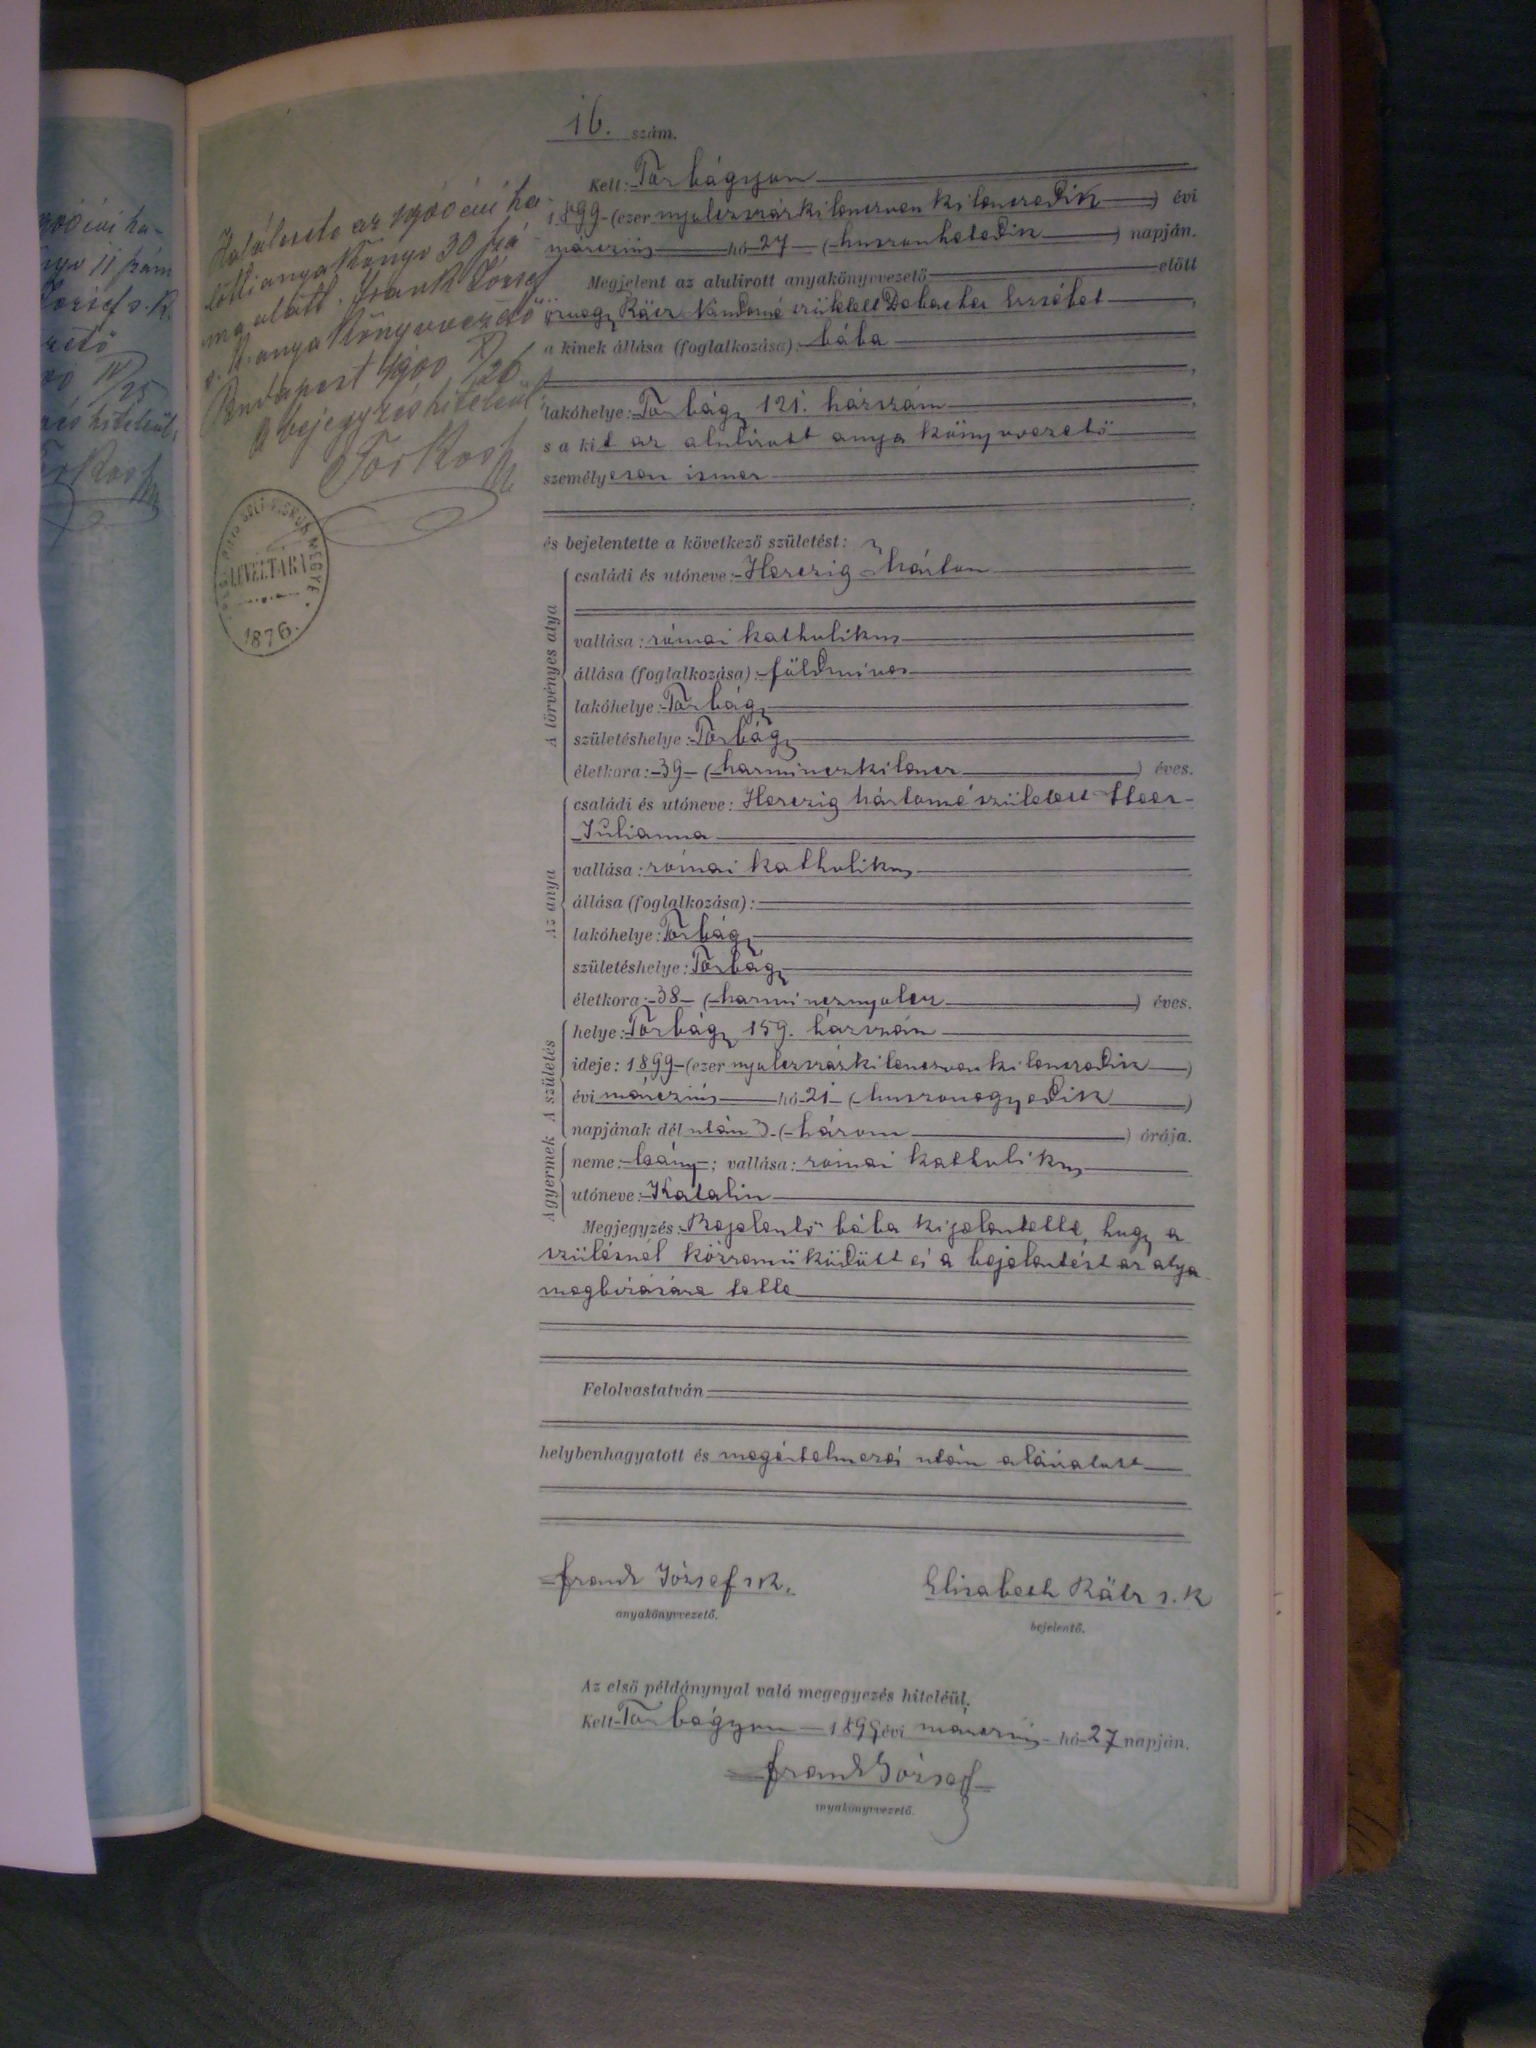 16. szám.
Kelt: Torbágyon
1899 (ezer nyolczszázkilenczvenkilenczedik) évi
márczius hó 27 (huszonhetedik) napján.
Megjelent az alulirott anyakönyvvezető előtt
özvegy Rätz Nándorné született Erzsébet,
a kinek állása (foglalkozása): bába
lakóhelye: Torbágy 121. házszám,
s a kit az alulirott anyakönyvvezető
személyesen ismer
és bejelentette a következő születést:
A törvényes atya
családi és utóneve: Herczig Márton
vallása: római katholikus
állása (foglalkozása): földmíves
lakóhelye: Torbágy
születéshelye: Torbágy
életkora: 39 (harminczkilencz) éves.
Az anya
családi és utóneve: Herczig Mártonné született
Julianna
vallása: római katholikus
állása (foglalkozása):
lakóhelye: Torbágy
születéshelye: Torbágy
életkora: 38 (harmincznyolcz) éves.
A születés
helye: Torbágy 159. házszám
ideje: 1899 (ezer nyolczszázkilenczvenkilenczedik)
évi márczius hó 21 (huszonegyedik)
napjának dél után 3 (három) órája.
A gyermek
neme: leány; vallása: római katholikus
utóneve: Katalin
Megjegyzés: Bejelentő bába kijelentette, hogy a
szülésnél közremüködött és a bejelentést az atya
megbizására tette
Felolvastatván
helybenhagyatott és megértelmezés után aláiratott
Frank József sk.
anyakönyvvezető.
Elisabeth Rätz s. k
bejelentő.
Az első példánynyal való megegyezés hiteléül.
Kelt Torbágyon 1899 évi márczius hó 27 napján.
Frank József
anyakönyvvezető.
Halálesete az 1900 évi ha-
lotti anyakönyv 30 szá-
ma alatt. Frank József
s. k. anyakönyvvezető
Budapest 1900 X/26
A bejegyzés hiteléül
LEVÉLTÁRA
1876.
1900 évi ha-
11 szám
József s. k.
vezető
IV/25
hiteléül